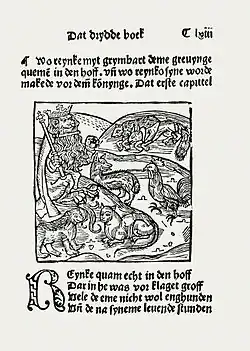 Dat drydde boek C lxiii
¶ Wo reynke myt grymbart deme grevynge
quemē in den hoff. vñ wo reynko syne worde
makede vor dem̄ kōnynge. Dat erste capittel
REynke quam echt in den hoff
Dar in he was vor klaget groff
Vele de eme nicht wol enghunden
Vñ de na syneme levende stunden